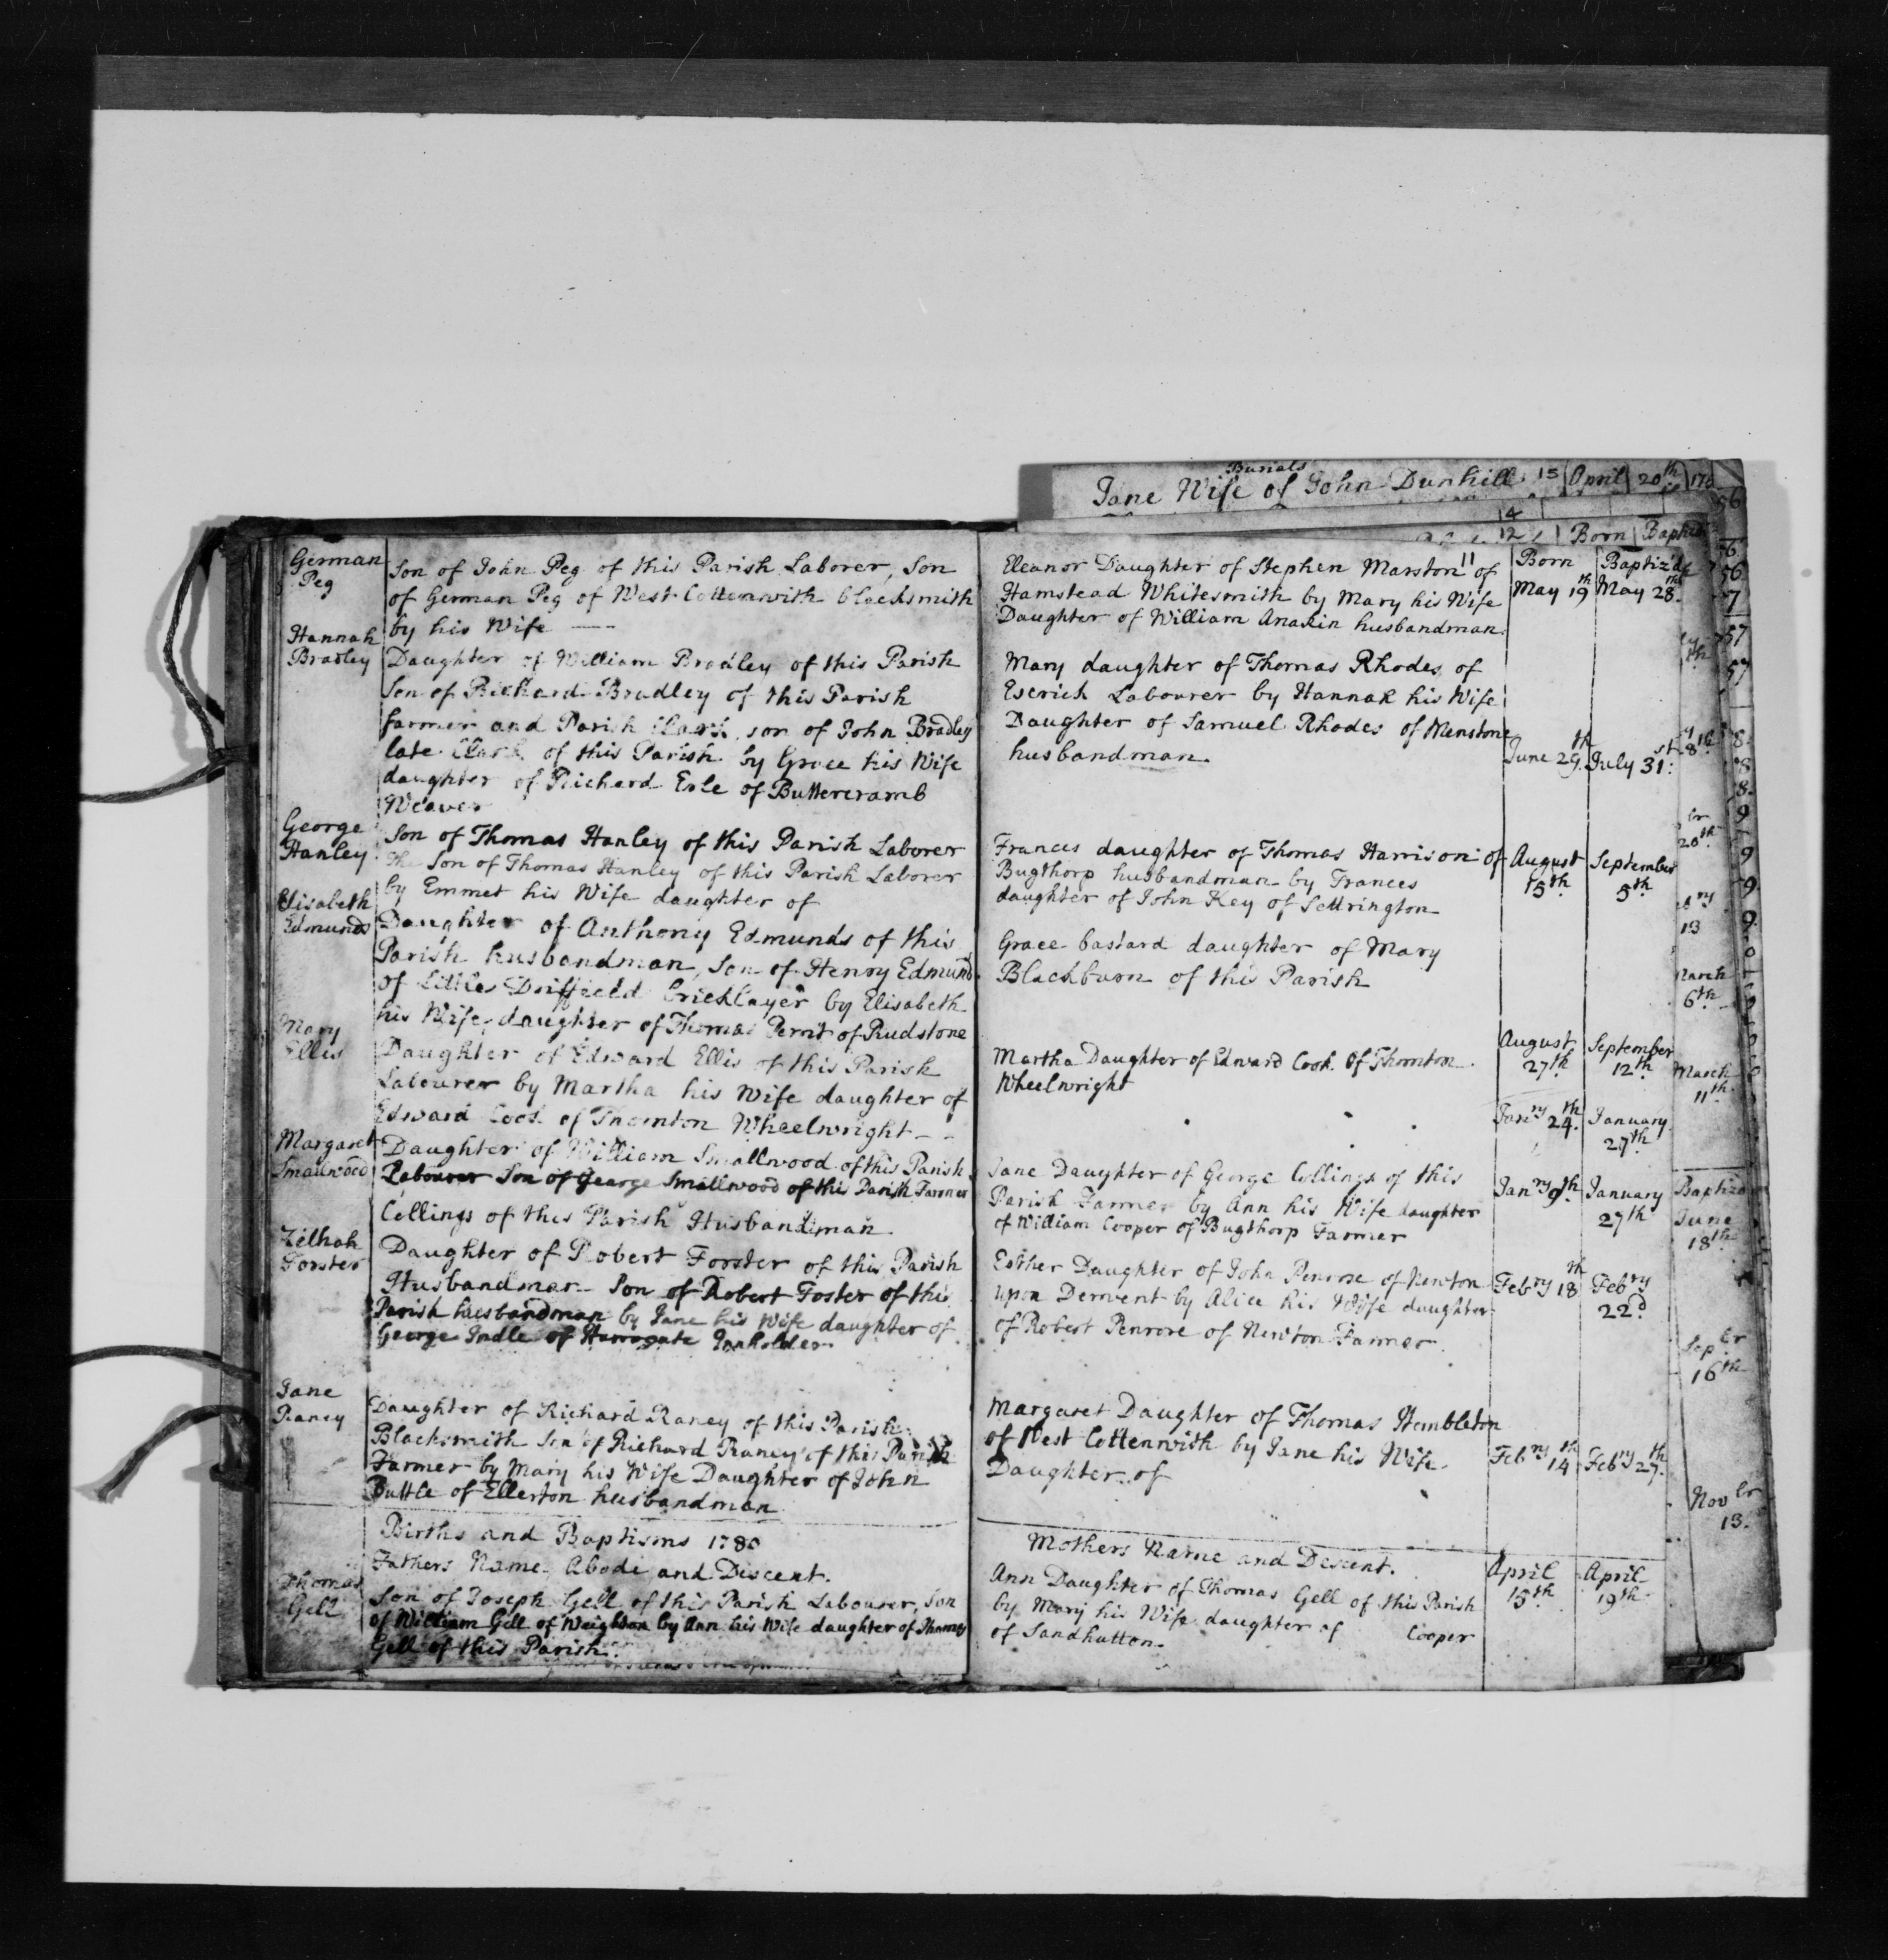 Burials
Jane Wife of John Dunhill 15 April 20th 176
14
56
12 Born Baptiz
German
Peg
Son of John Peg of this Parish Laborer, Son
of German Peg of West Cottenwith blacksmith
by his Wife
Hannah
Bradley
Daughter of William Bradley of this Parish
Son of Richard Bradley of this Parish
farmer and Parish Clark, son of John Bradley
late Clark of this Parish by Grace his Wife
daughter of Richard Esle of Buttercramb
Weaver
George
Hanley
Son of Thomas Hanley of this Parish Laborer
the Son of Thomas Hanley of this Parish Laborer
by Emmet his Wife daughter of
Elisabeth
Edmunds
Daughter of Anthony Edmunds of this
Parish husbandman, Son of Henry Edmund
of Little Driffield bricklayer by Elisabeth
his Wife, daughter of Thomas Perrit of Rudstone
Mary
Ellis
Daughter of Edward Ellis of this Parish
Labourer by Martha his Wife daughter of
Edward Cook of Thornton Wheelwright
Margaret
Smallwood
Daughter of William Smallwood of this Parish
Labourer Son of George Smallwood of this Parish Farmer
Collings of this Parish Husbandman
Zilhah
Forster
Daughter of Robert Forster of this Parish
Husbandman Son of Robert Foster of this
Parish husbandman by Jane his Wife daughter of
George Indle of Harrogate Inholder
Jane
Raney
Daughter of Richard Raney of this Parish
Blacksmith Son of Richard Raney of this Parish
Farmer by Mary his Wife Daughter of John
Puttle of Ellerton husbandman
Births and Baptisms 1780
Fathers Name Abode and Discent.
Thomas
Gell
Son of Joseph Gell of this Parish Labourer, Son
of William Gell of Weighton by Ann his Wife daughter of Thomas
Gell of this Parish.
11
Born Baptiz'd
Eleanor Daughter of Stephen Marston of May 19th May 28th
Hamstead Whitesmith by Mary his Wife
Daughter of William Anakin husbandman
Mary daughter of Thomas Rhodes of
Escrick Labourer by Hannah his Wife
Daughter of Samuel Rhodes of Menstone
husbandman. June 29th July 31st
Frances daughter of Thomas Harrison of August September
Bugthorp husbandman by Frances 15th 5th
daughter of John Key of Settrington
Grace bastard daughter of Mary
Blackburn of this Parish
August September
27th 12th
Martha Daughter of Edward Cook of Thornton
Wheelwright
Janry 24th January
27th
Jane Daughter of George Collings of this Janry 9th January
Parish Farmer by Ann his Wife daughter 27th
of William Cooper of Bugthorp Farmer
Esther Daughter of John Penrose of Newton Febry 18th Febry
upon Derwent by Alice his Wife daughter 22d
of Robert Penrose of Newton Farmer
Margaret Daughter of Thomas Hembleton
of West Cottenwith by Jane his Wife Febry 14th Febry 27th
Daughter of
Mothers Name and Descent.
Ann Daughter of Thomas Gell of this Parish April April
by Mary his Wife daughter of Cooper 15th 19th
of Sandhutton
8th
20th
13
March
6th
March
11th
Baptiz
June
18th
Sepber
16th
Novber
13